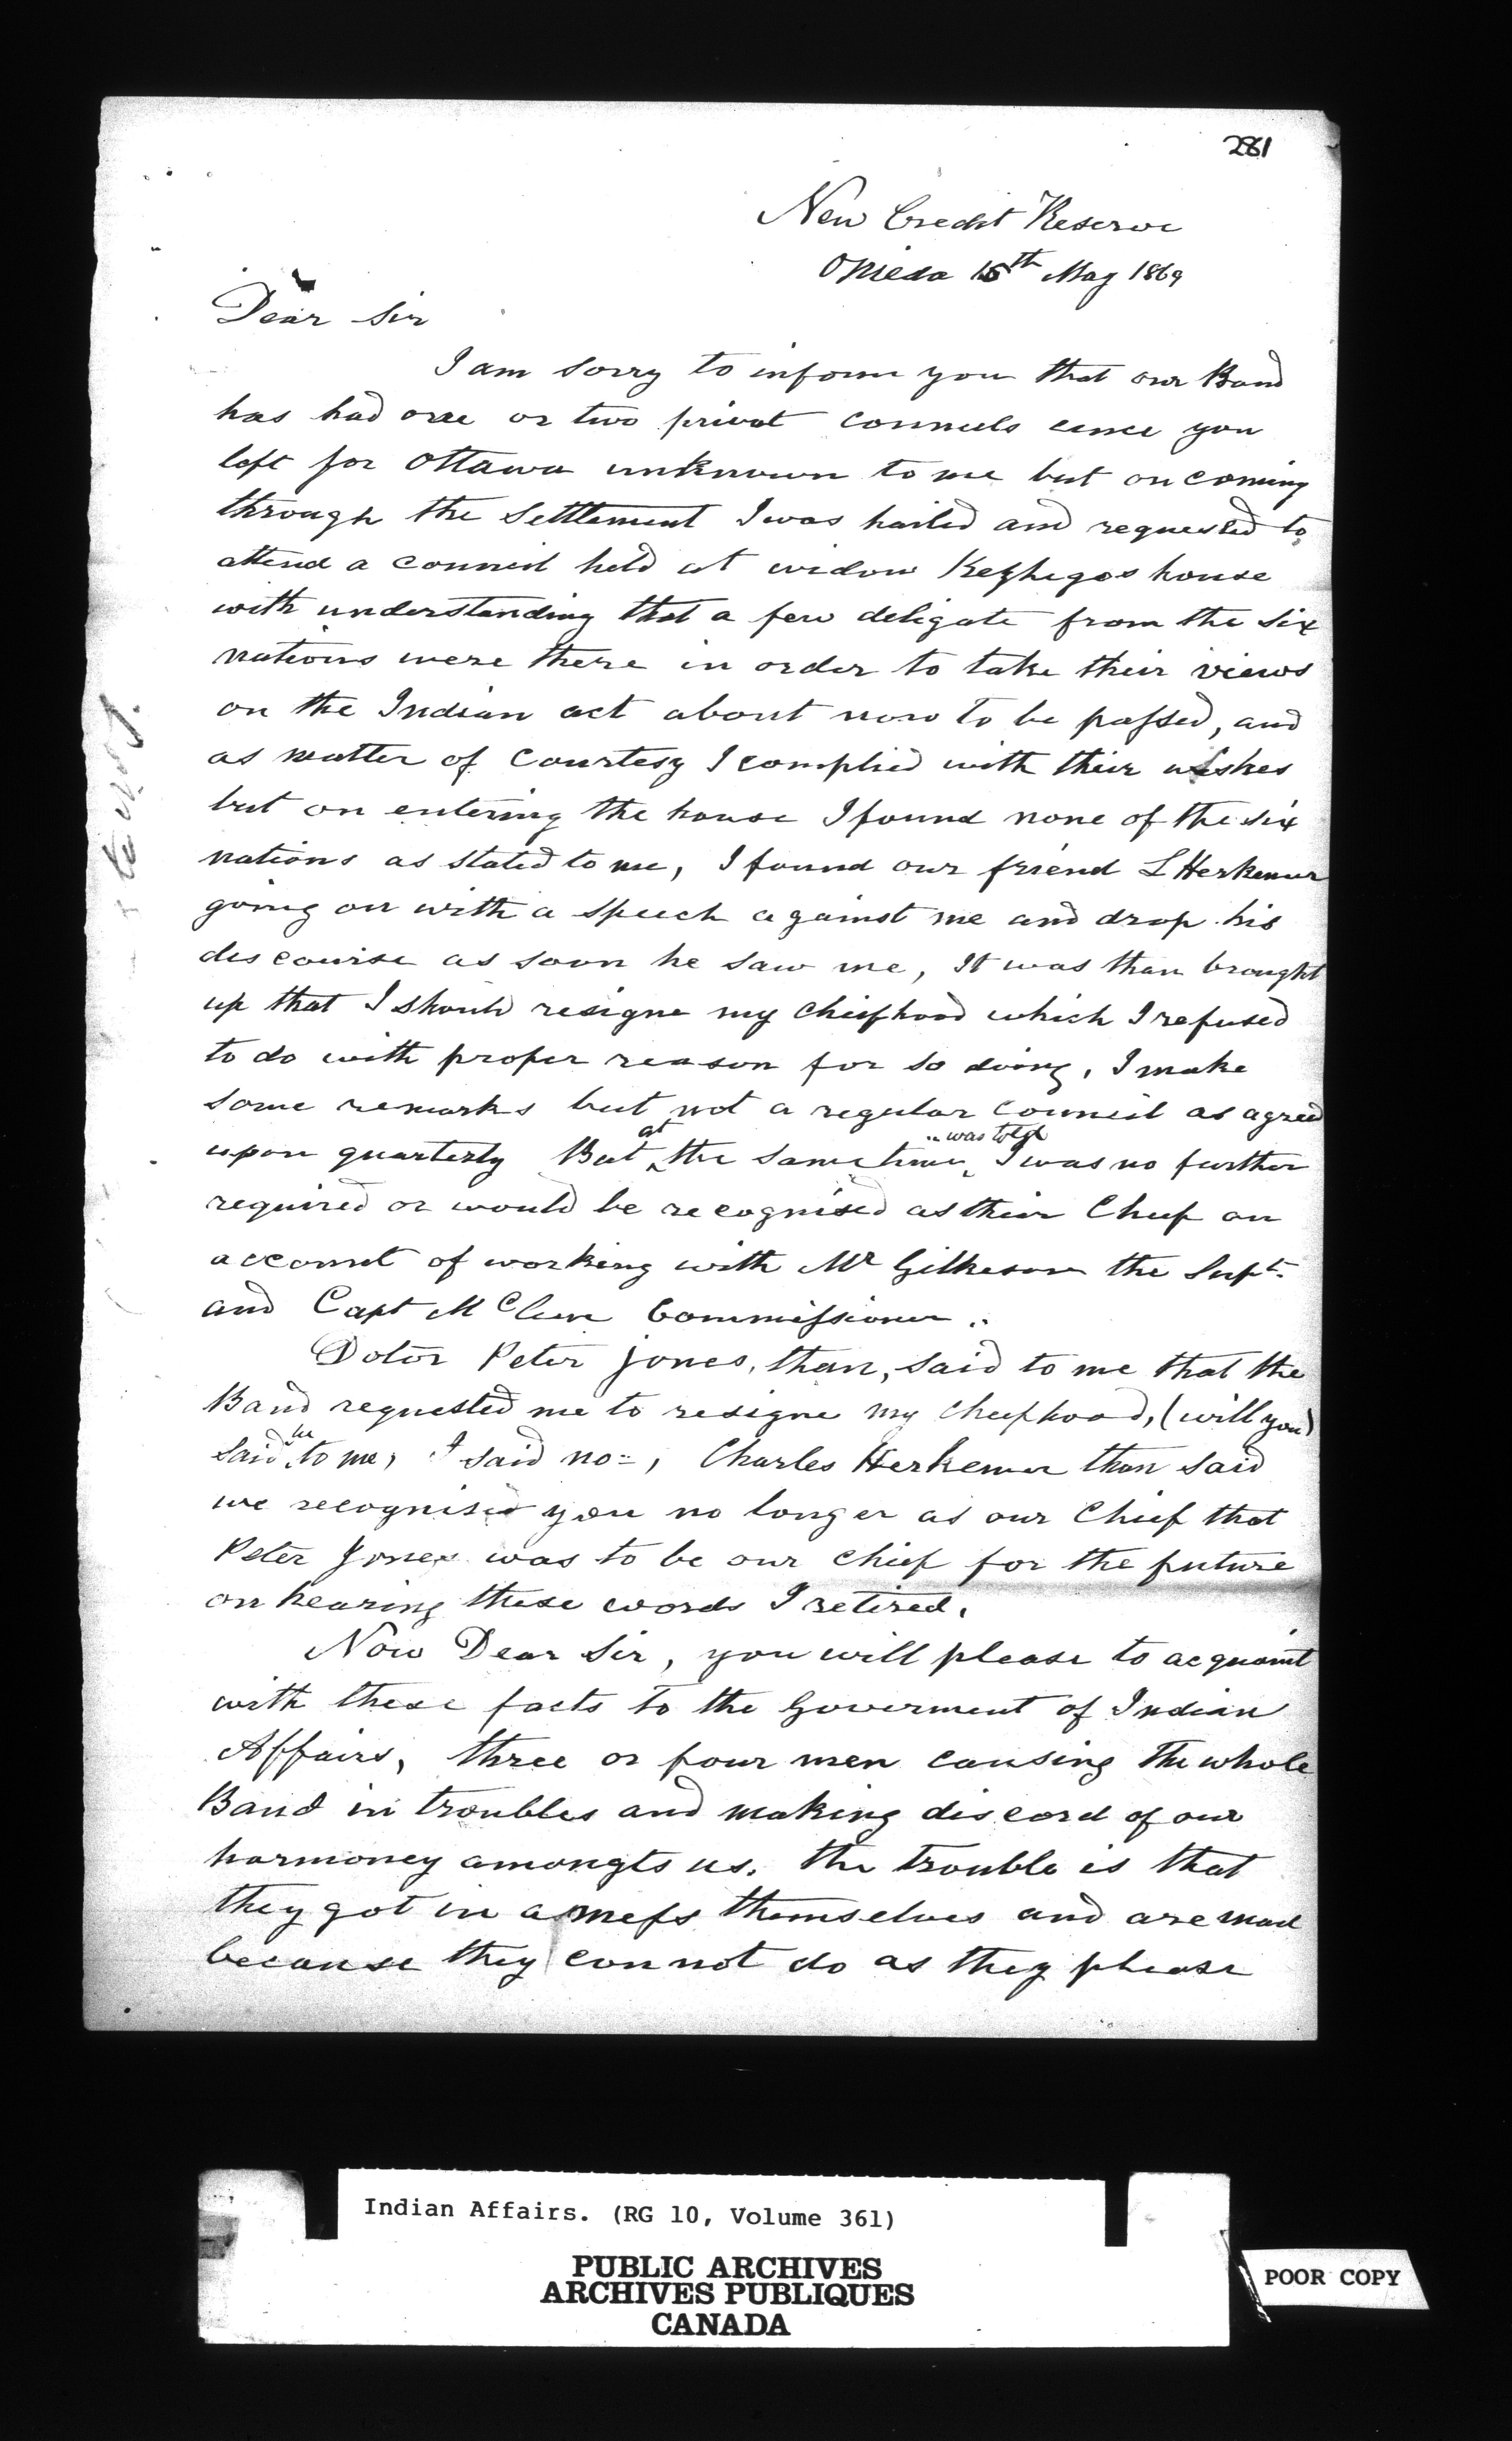 281
New Credit Reserve
Onieda 15th May 1869
Dear Sir
I am sorry to inform you that our Band
has had one or two privat councels cence you
left for Ottawa unknown to me but on coming
through the Settlement I was hailed and requested to
attend a council held at widow Kezhegos house
with understanding that a few deligate from the Six
nations were there in order to take their views
on the Indian act about now to be passed, and
as matter of Courtesy I complied with their wishes
but on entering the house I found none of the six
nations as stated to me, I found our friend L Herkemer
going on with a speech against me and drop his
discourse as soon he saw me, It was than brought
up that I should resigne my chiefhood which I refused
to do with proper reason for so doing, I make
some remarks but not a regular council as agreed
upon quarterly But at the sametime, was told I was no further
required or would be recognised as their Chief on
account of working with Mr Gilkeson the Supt.
and Capt McClure Commissioner..
Dotor Peter Jones, than, said to me that the
Band requested me to resigne my cheefhood, (will you)
said he to me, I said no=, Charles Herkemer than said
we recognised you no longer as our Chief that
Peter Jones was to be our chief for the future
on hearing these words I retired.
Now Dear Sir, you will please to acquaint
with these facts to the Goverment of Indian
Affairs, three or four men causing the whole
Band in troubles and making discord of our
harmoney amongts us. the trouble is that
they got in a mess themselves and are mad
because they connot do as they please
Indian Affairs. (RG 10, Volume 361)
PUBLIC ARCHIVES
ARCHIVES PUBLIQUES
CANADA
POOR COPY